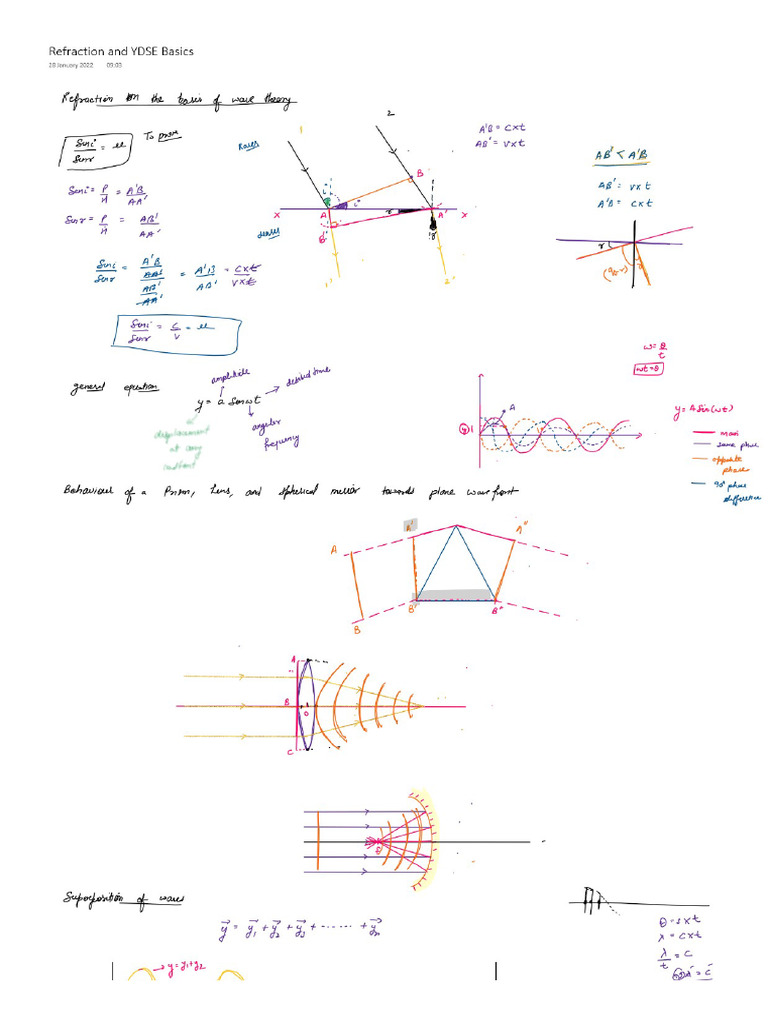 Refraction and YDSE Basics
28 January 2022 09:03
Refraction on the basis of wave theory
Sin i / Sin r = μ To prove
Sin i = P/H = A'B/AA'
Sin r = P/H = AB'/AA'
Sin i / Sin r = A'B/AA' / AB'/AA' = A'B/AB' = C×t/V×t
Sin i / Sin r = C/V = μ
1
2
Rarer
B
i
i
X A r A' X
B'
Denser
1' 2'
A'B = C×t
AB' = V×t
AB' < A'B
AB' = V×t
A'B = C×t
r
(90-r)
general equation
y = a Sin ωt
amplitude
desired time
displacement at any
angular frequency
ω = θ/t
ωt = θ
A
y = A Sin(ωt)
main
same phase
opposite phase
90° phase difference
Behaviour of a Prism, Lens, and Spherical mirror towards plane wavefront
A A' A"
B B' B"
A
B O
C
Superposition of waves
y = y1 + y2 + y3 + ...... + yn
y = y1+y2
λ = C×t
λ/t = C